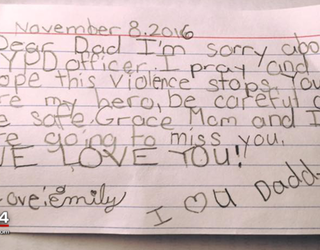 November 8.2016
Dear Dad I'm sorry abo
YPD officer. I pray and
ope this violence stops. You
re my hero, be careful a
e safe. Grace Mom and I
re going to miss you.
WE LOVE YOU!
Love, emily
I ♡ U Daddy
4